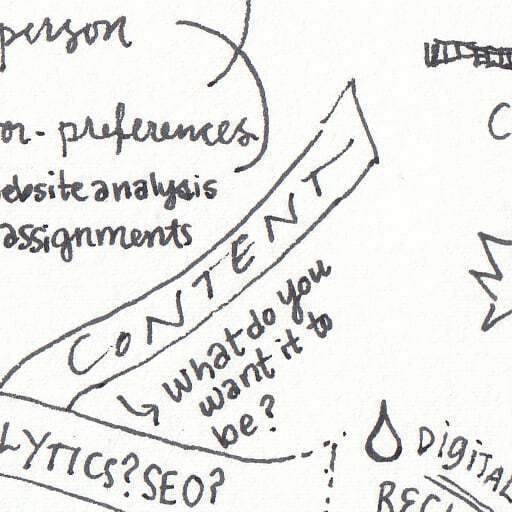 person
or - preferences
website analysis
assignments
CONTENT
What do you
want it to
be?
LYTICS? SEO?
DIGITAL